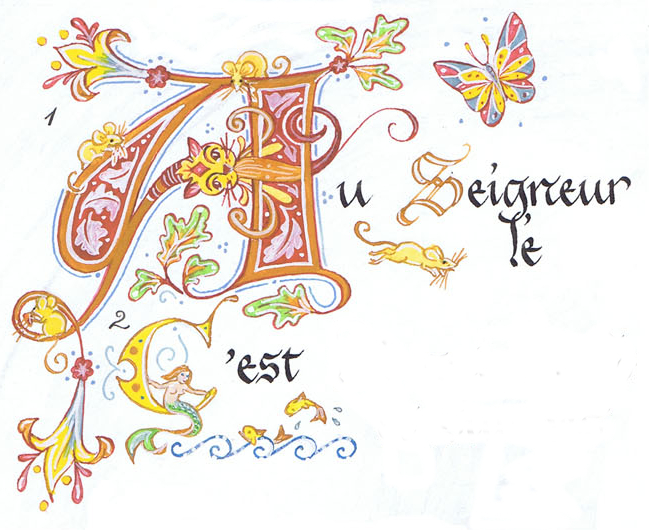 1
Au Seigneur
l'e
2
C'est